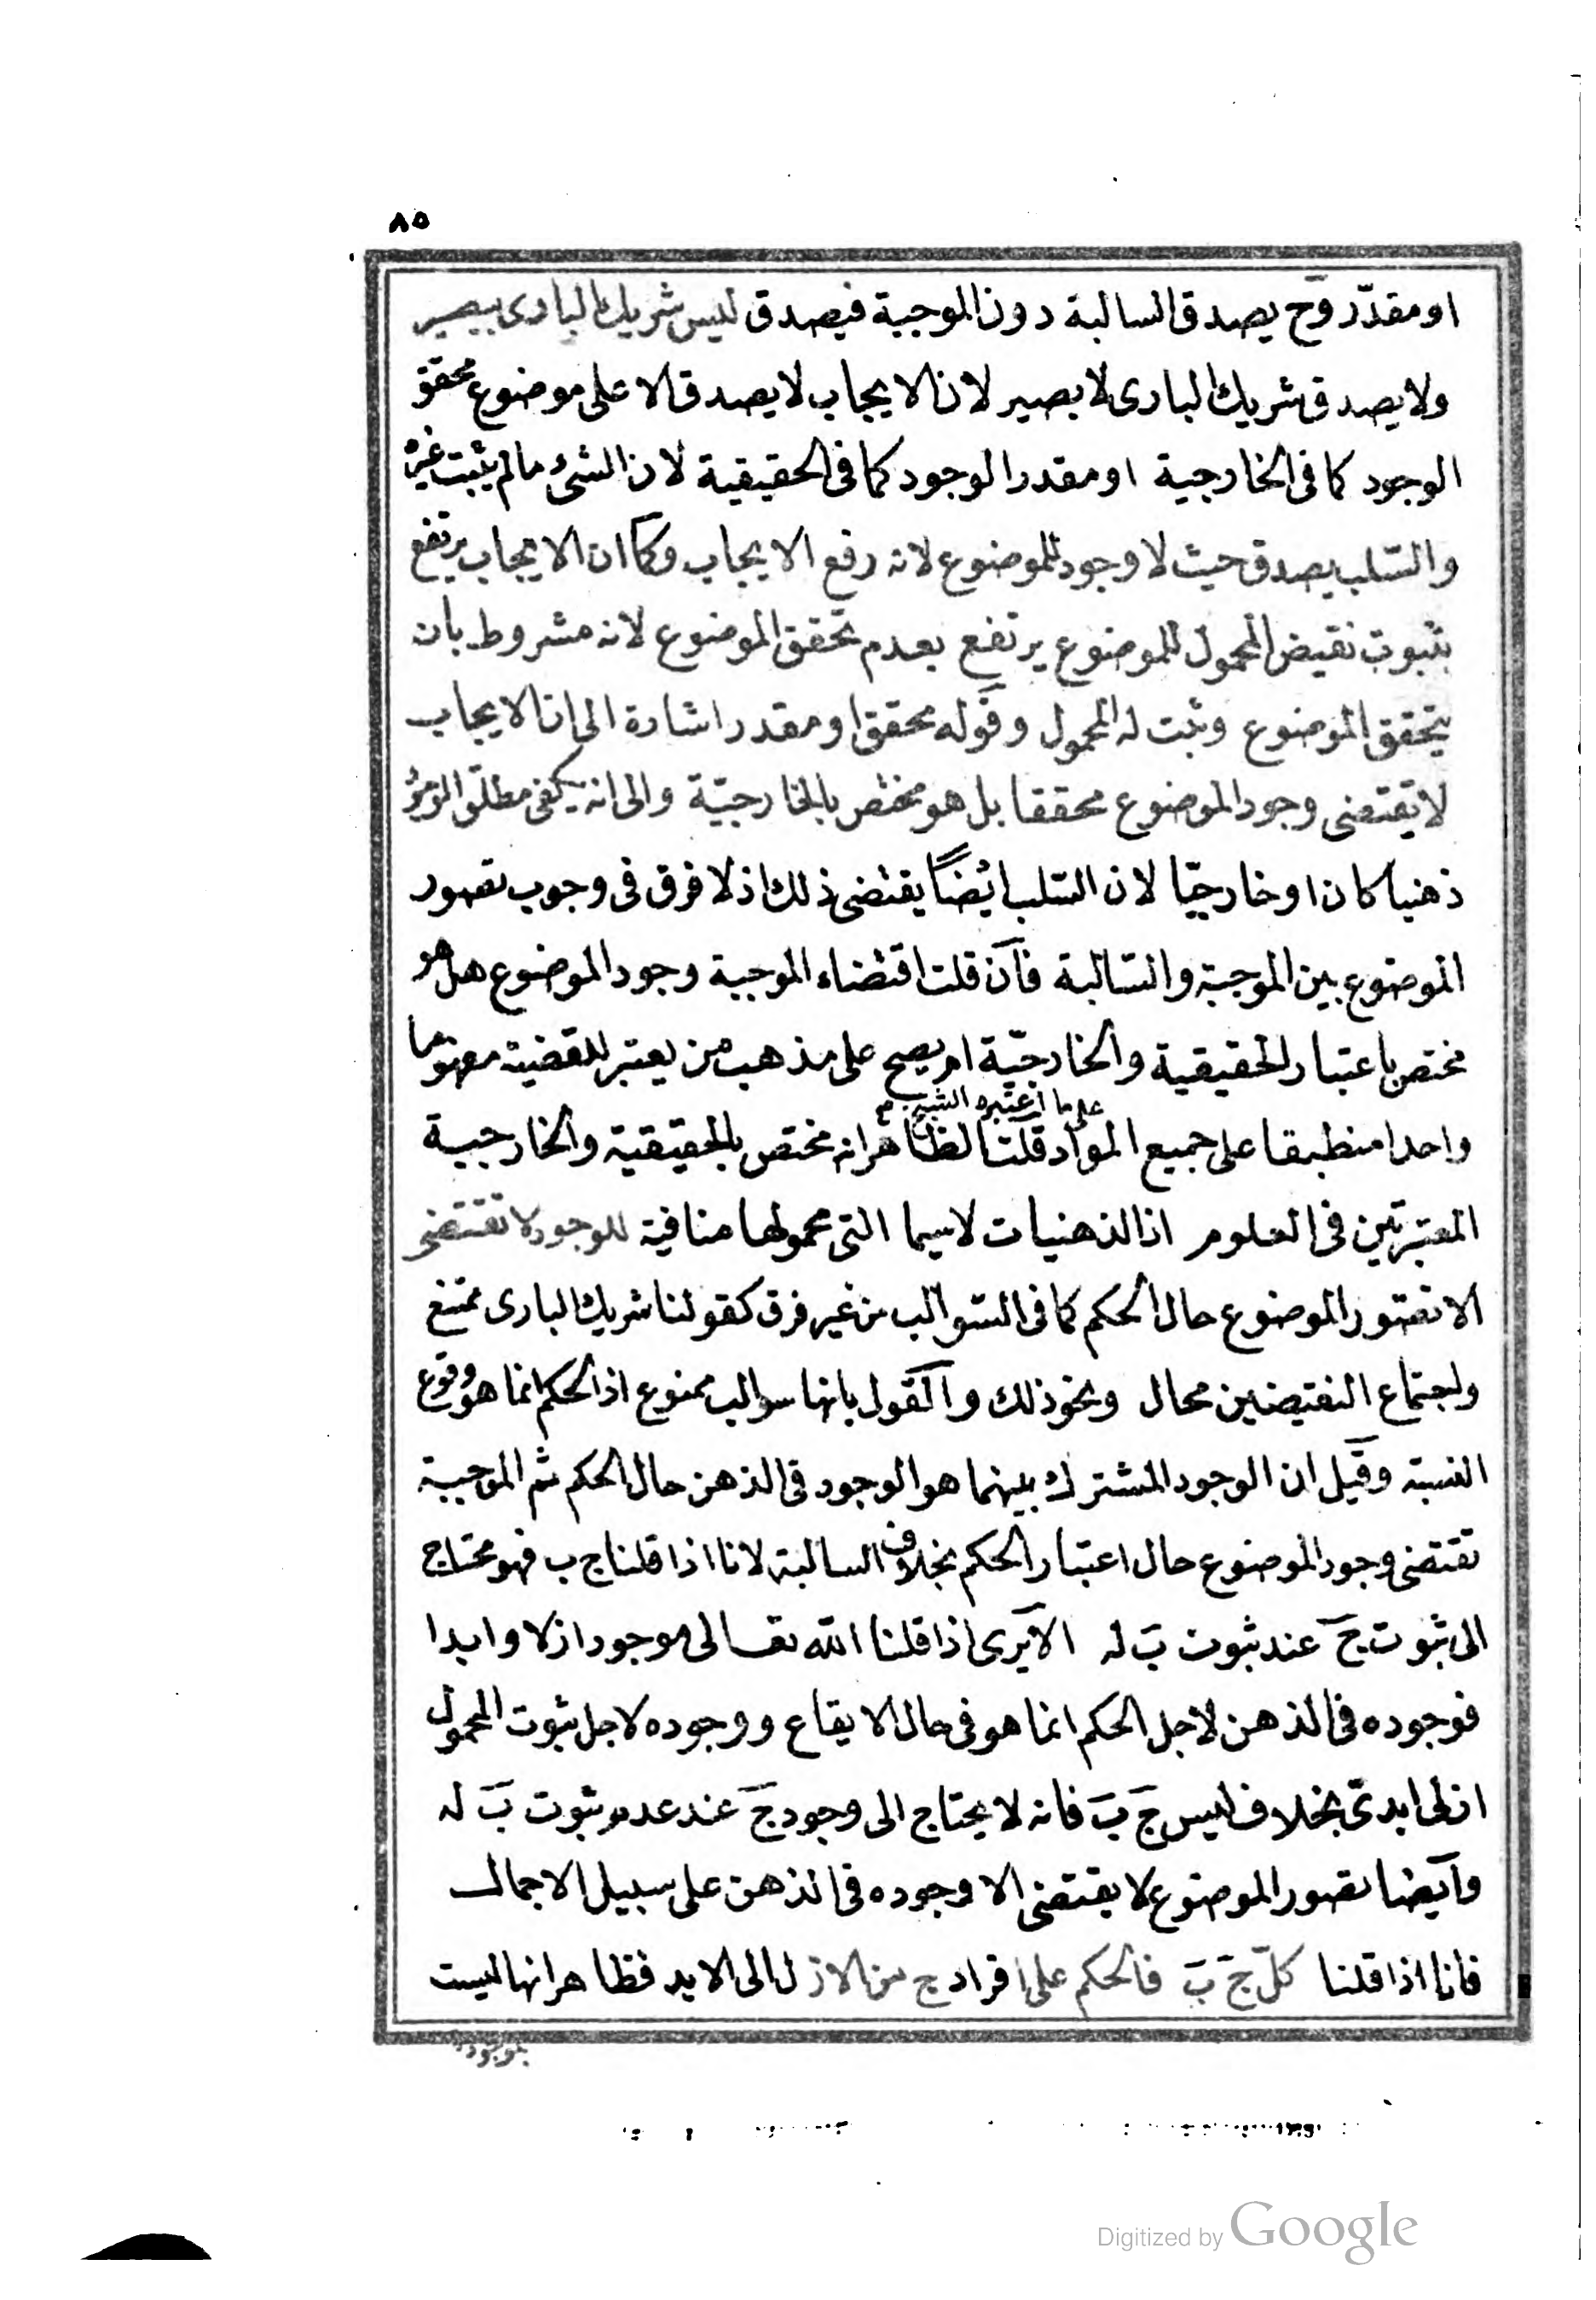 ٨٥
او مقدّر وح يصدق السالبة دون الموجبة فيصدق ليس شريك البارى ببصير
ولا يصدق شريك البارى لا بصير لان الايجاب لا يصدق الا على موضوع محقق
الوجود كما فى الخارجية او مقدر الوجود كما فى الحقيقية لان الشئ ما لم يثبت غيره
والسّلب يصدق حيث لا وجود للموضوع لانه رفع الايجاب وكما ان الايجاب يرتفع
بثبوت نقيض المحمول للموضوع يرتفع بعدم تحقق الموضوع لانه مشروط بان
يتحقق الموضوع ويثبت له المحمول وقوله محقق او مقدر اشارة الى ان الايجاب
لا يقتضى وجود الموضوع محققا بل هو مختص بالخارجيّة والى انه يكفى مطلق
ذهنيا كان او خارجيّا لان السّلب ايضاً يقتضى ذلك اذ لا فرق فى وجوب تصور
الموضوع بين الموجبة والسّالبة فآن قلت اقتضاء الموجبة وجود الموضوع هل هو
مختص باعتبار الحقيقية والخارجيّة ام يصح على مذهب من يعتبر للقضية مفهوما
على ما اعتبره الشيخ
واحدا منطبقا على جميع المواد قلت الظاهر انه مختص بالحقيقية والخارجية
المعتبرتين فى العلوم اذ الذهنيات لا سيما التى محمولها منافية للوجود لا تقتضى
الا تصور الموضوع حال الحكم كما فى السّوالب من غير فرق كقولنا شريك البارى ممتنع
واجتماع النقيضين محال ونحو ذلك وآلقول بانها سوالب ممنوع اذ الحكم انما هو وقوع
النسبة وقيل ان الوجود المشترك بينهما هو الوجود فى الذهن حال الحكم ثم الموجبة
تقتضى وجود الموضوع حال اعتبار الحكم بخلاف السالبة لانا اذا قلنا ج ب فهو محتاج
الى ثبوت جَ عند ثبوت بَ له الآيرى اذا قلنا الله تعالى موجود ازلا وابدا
فوجوده فى الذهن لاجل الحكم انما هو فى حال الايقاع ووجوده لاجل ثبوت المحمول
ازلى ابدىّ بخلاف ليس جَ بَ فانه لا يحتاج الى وجود جَ عند عدم ثبوت بَ له
وآيضا تصور الموضوع لا يقتضى الا وجوده فى الذهن على سبيل الاجمال
فانا اذا قلنا كلّ جَ بَ فالحكم على افراد ج من الازل الى الابد فظاهر انها ليست
بموجودة
Digitized by Google